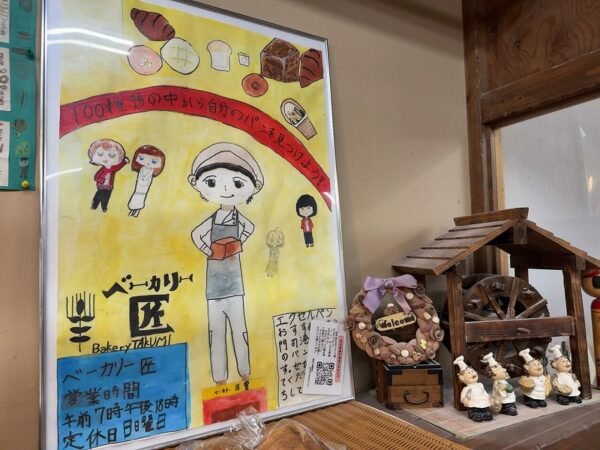 100種類の中から自分のパンを見つけよう!!
ベーカリー
匠
Bakery TAKUMI
ベーカリー匠
営業時間
午前7時午後18時
定休日日曜日
Welcome